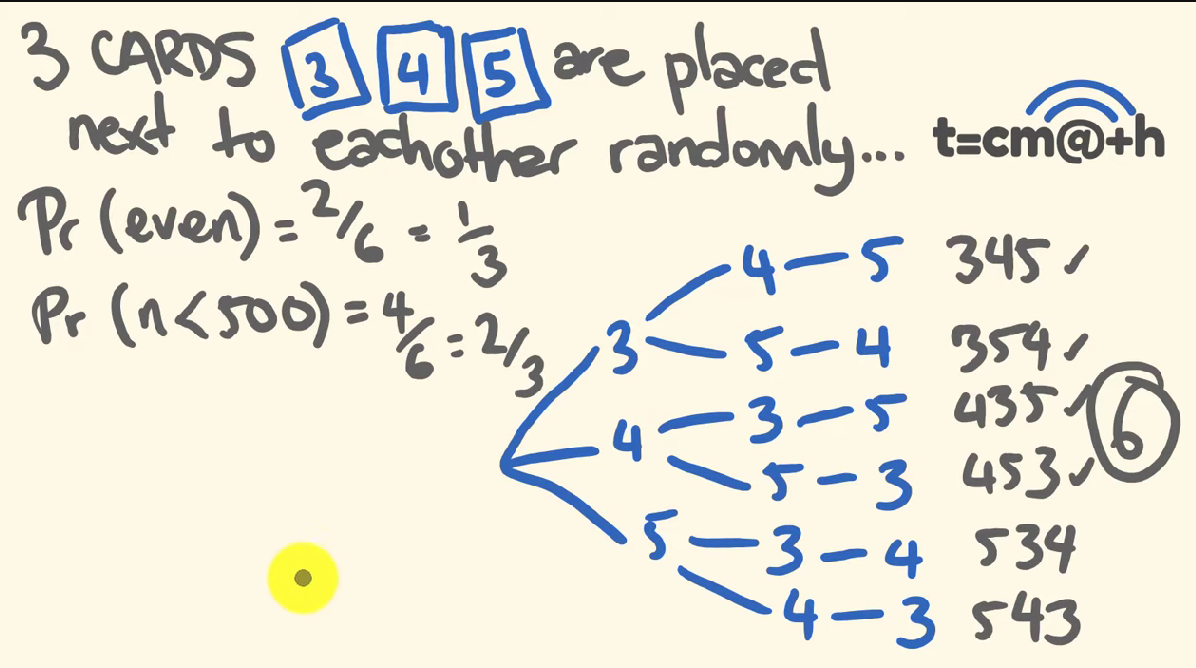 3 CARDS 3 4 5 are placed
next to eachother randomly...
t=cm@+h
Pr (even) = 2/6 = 1/3
Pr (n<500) = 4/6 = 2/3
4 — 5 345 ✓
3
5 — 4 354 ✓
3 — 5 435 ✓
4
5 — 3 453 ✓
6
5 — 3 — 4 534
4 — 3 543